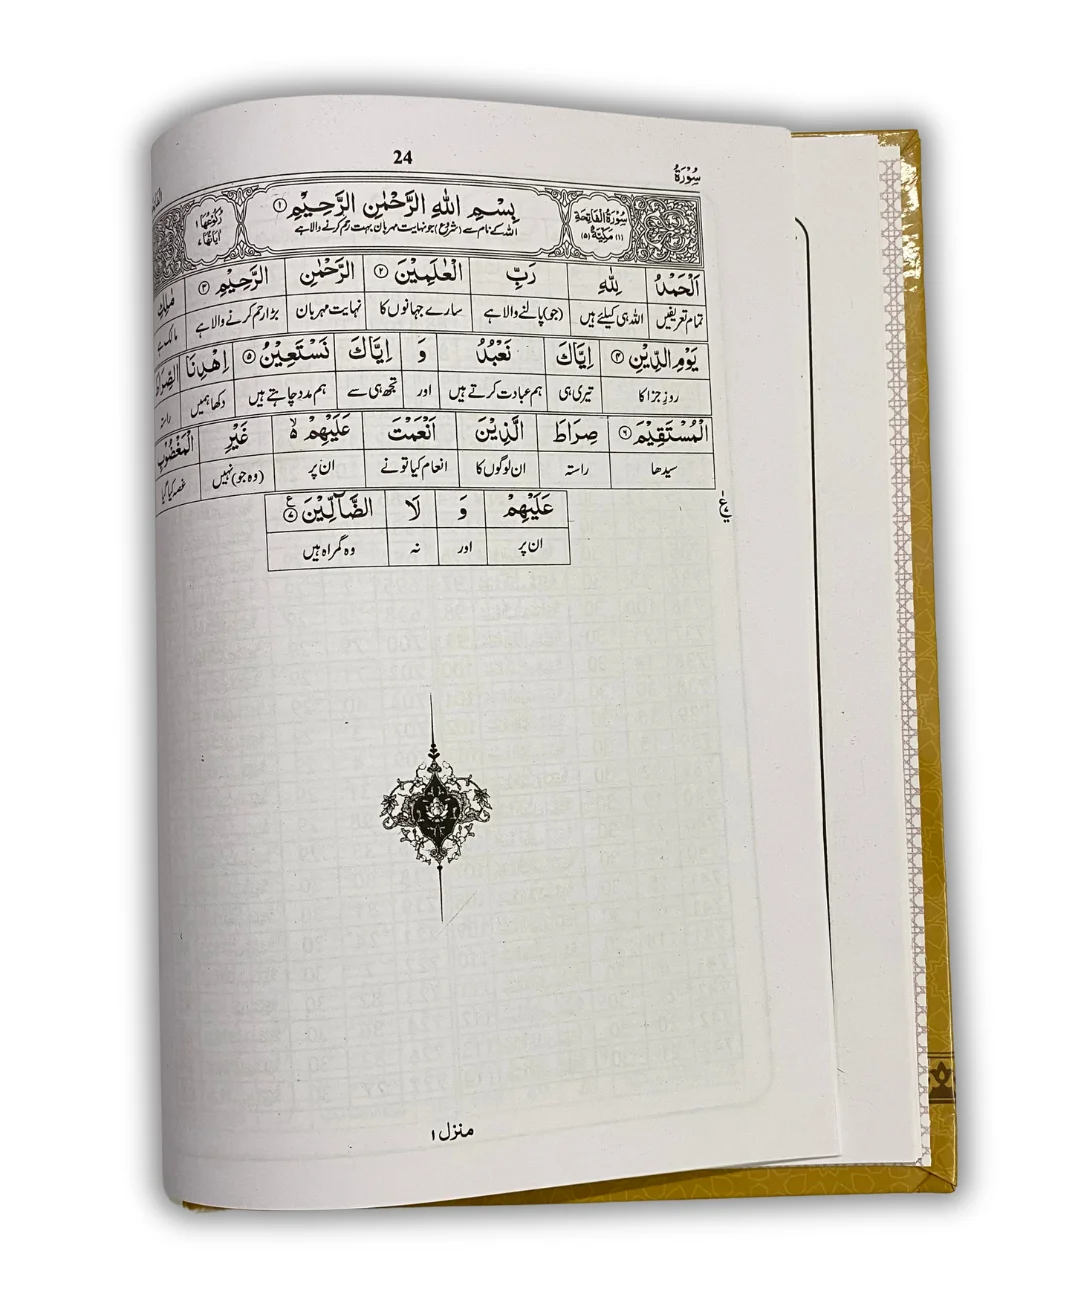 24
سُوْرَةُ
سُوْرَةُ الْفَاتِحَةِ
(۱) مَكِّيَّةٌ (۵)
بِسْمِ اللّٰهِ الرَّحْمٰنِ الرَّحِيْمِ ۱
اللہ کے نام سے (شروع) جو نہایت مہربان بہت رحم کرنے والا ہے
رُكُوْعُهَا ۱
اٰيَاتُهَا ۷
اَلْحَمْدُ لِلّٰهِ رَبِّ الْعٰلَمِيْنَ ۲ الرَّحْمٰنِ الرَّحِيْمِ ۳ مٰلِكِ
تمام تعریفیں اللہ ہی کیلئے ہیں (جو) پالنے والا ہے سارے جہانوں کا نہایت مہربان بڑا رحم کرنے والا ہے مالک ہے
يَوْمِ الدِّيْنِ ۴ اِيَّاكَ نَعْبُدُ وَ اِيَّاكَ نَسْتَعِيْنُ ۵ اِهْدِنَا الصِّرَاطَ
روزِ جزا کا تیری ہی ہم عبادت کرتے ہیں اور تجھ ہی سے ہم مدد چاہتے ہیں دکھا ہمیں راستہ
الْمُسْتَقِيْمَ ۶ صِرَاطَ الَّذِيْنَ اَنْعَمْتَ عَلَيْهِمْ ۙ۬ غَيْرِ الْمَغْضُوْبِ
سیدھا راستہ ان لوگوں کا انعام کیا تو نے ان پر (وہ جو) نہیں غصہ کیا گیا
عَلَيْهِمْ وَ لَا الضَّآلِّيْنَ ۷
ان پر اور نہ وہ گمراہ ہیں
منزل ۱